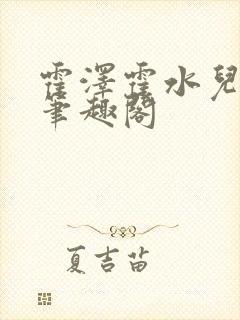 霍澤霍水兒
筆趣閣
夏吉苗